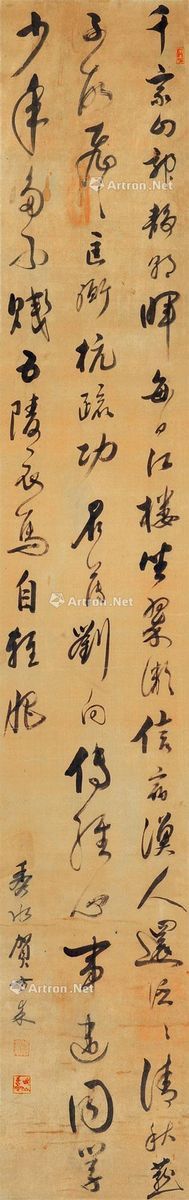 千家山郭靜朝暉每日江樓坐翠微信宿漁人還泛〻清秋燕
子故飛〻匡衡抗疏功名薄劉向傳經心事違同學
少年多不賤五陵衣馬自輕肥
秀水賀
Artron.Net
Artron.Net
Artron.Net
Artron.Net